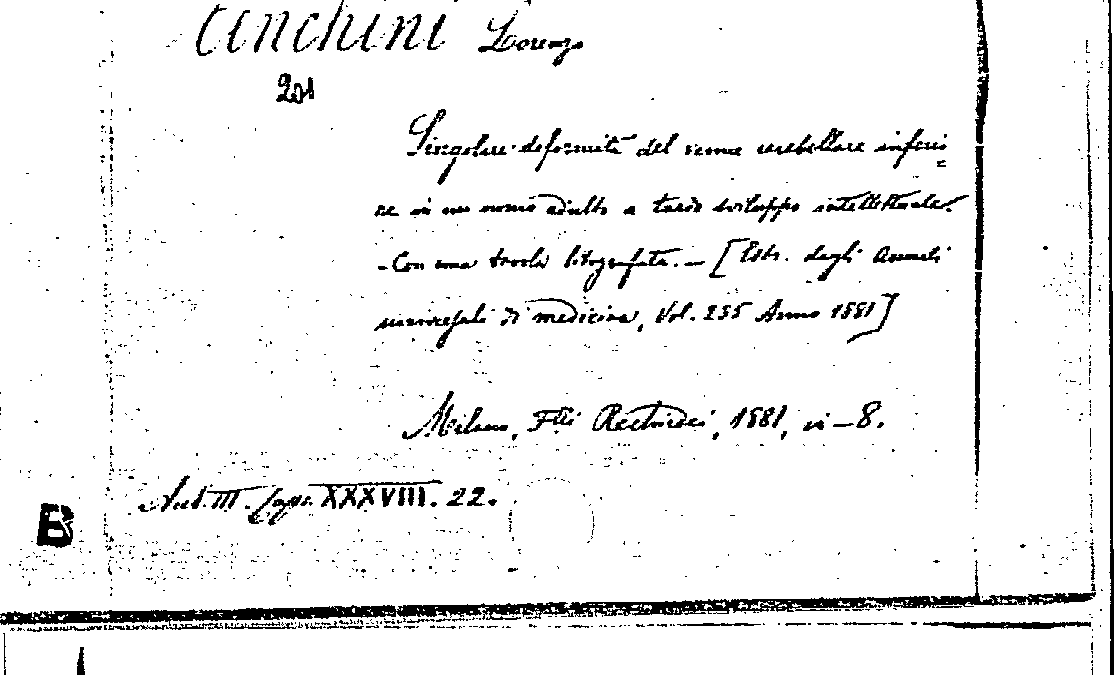 Tenchini Lorenzo
201
Singolare deformità del verme cerebellare inferio=
re in un uomo adulto a tardo sviluppo intellettuale.
- Con una tavola litografata. - [Estr. degli Annali
universali di medicina, Vol. 255 Anno 1881]
Milano, F.lli Rechiedei, 1881, in - 8.
XXXVIII. 22.
B